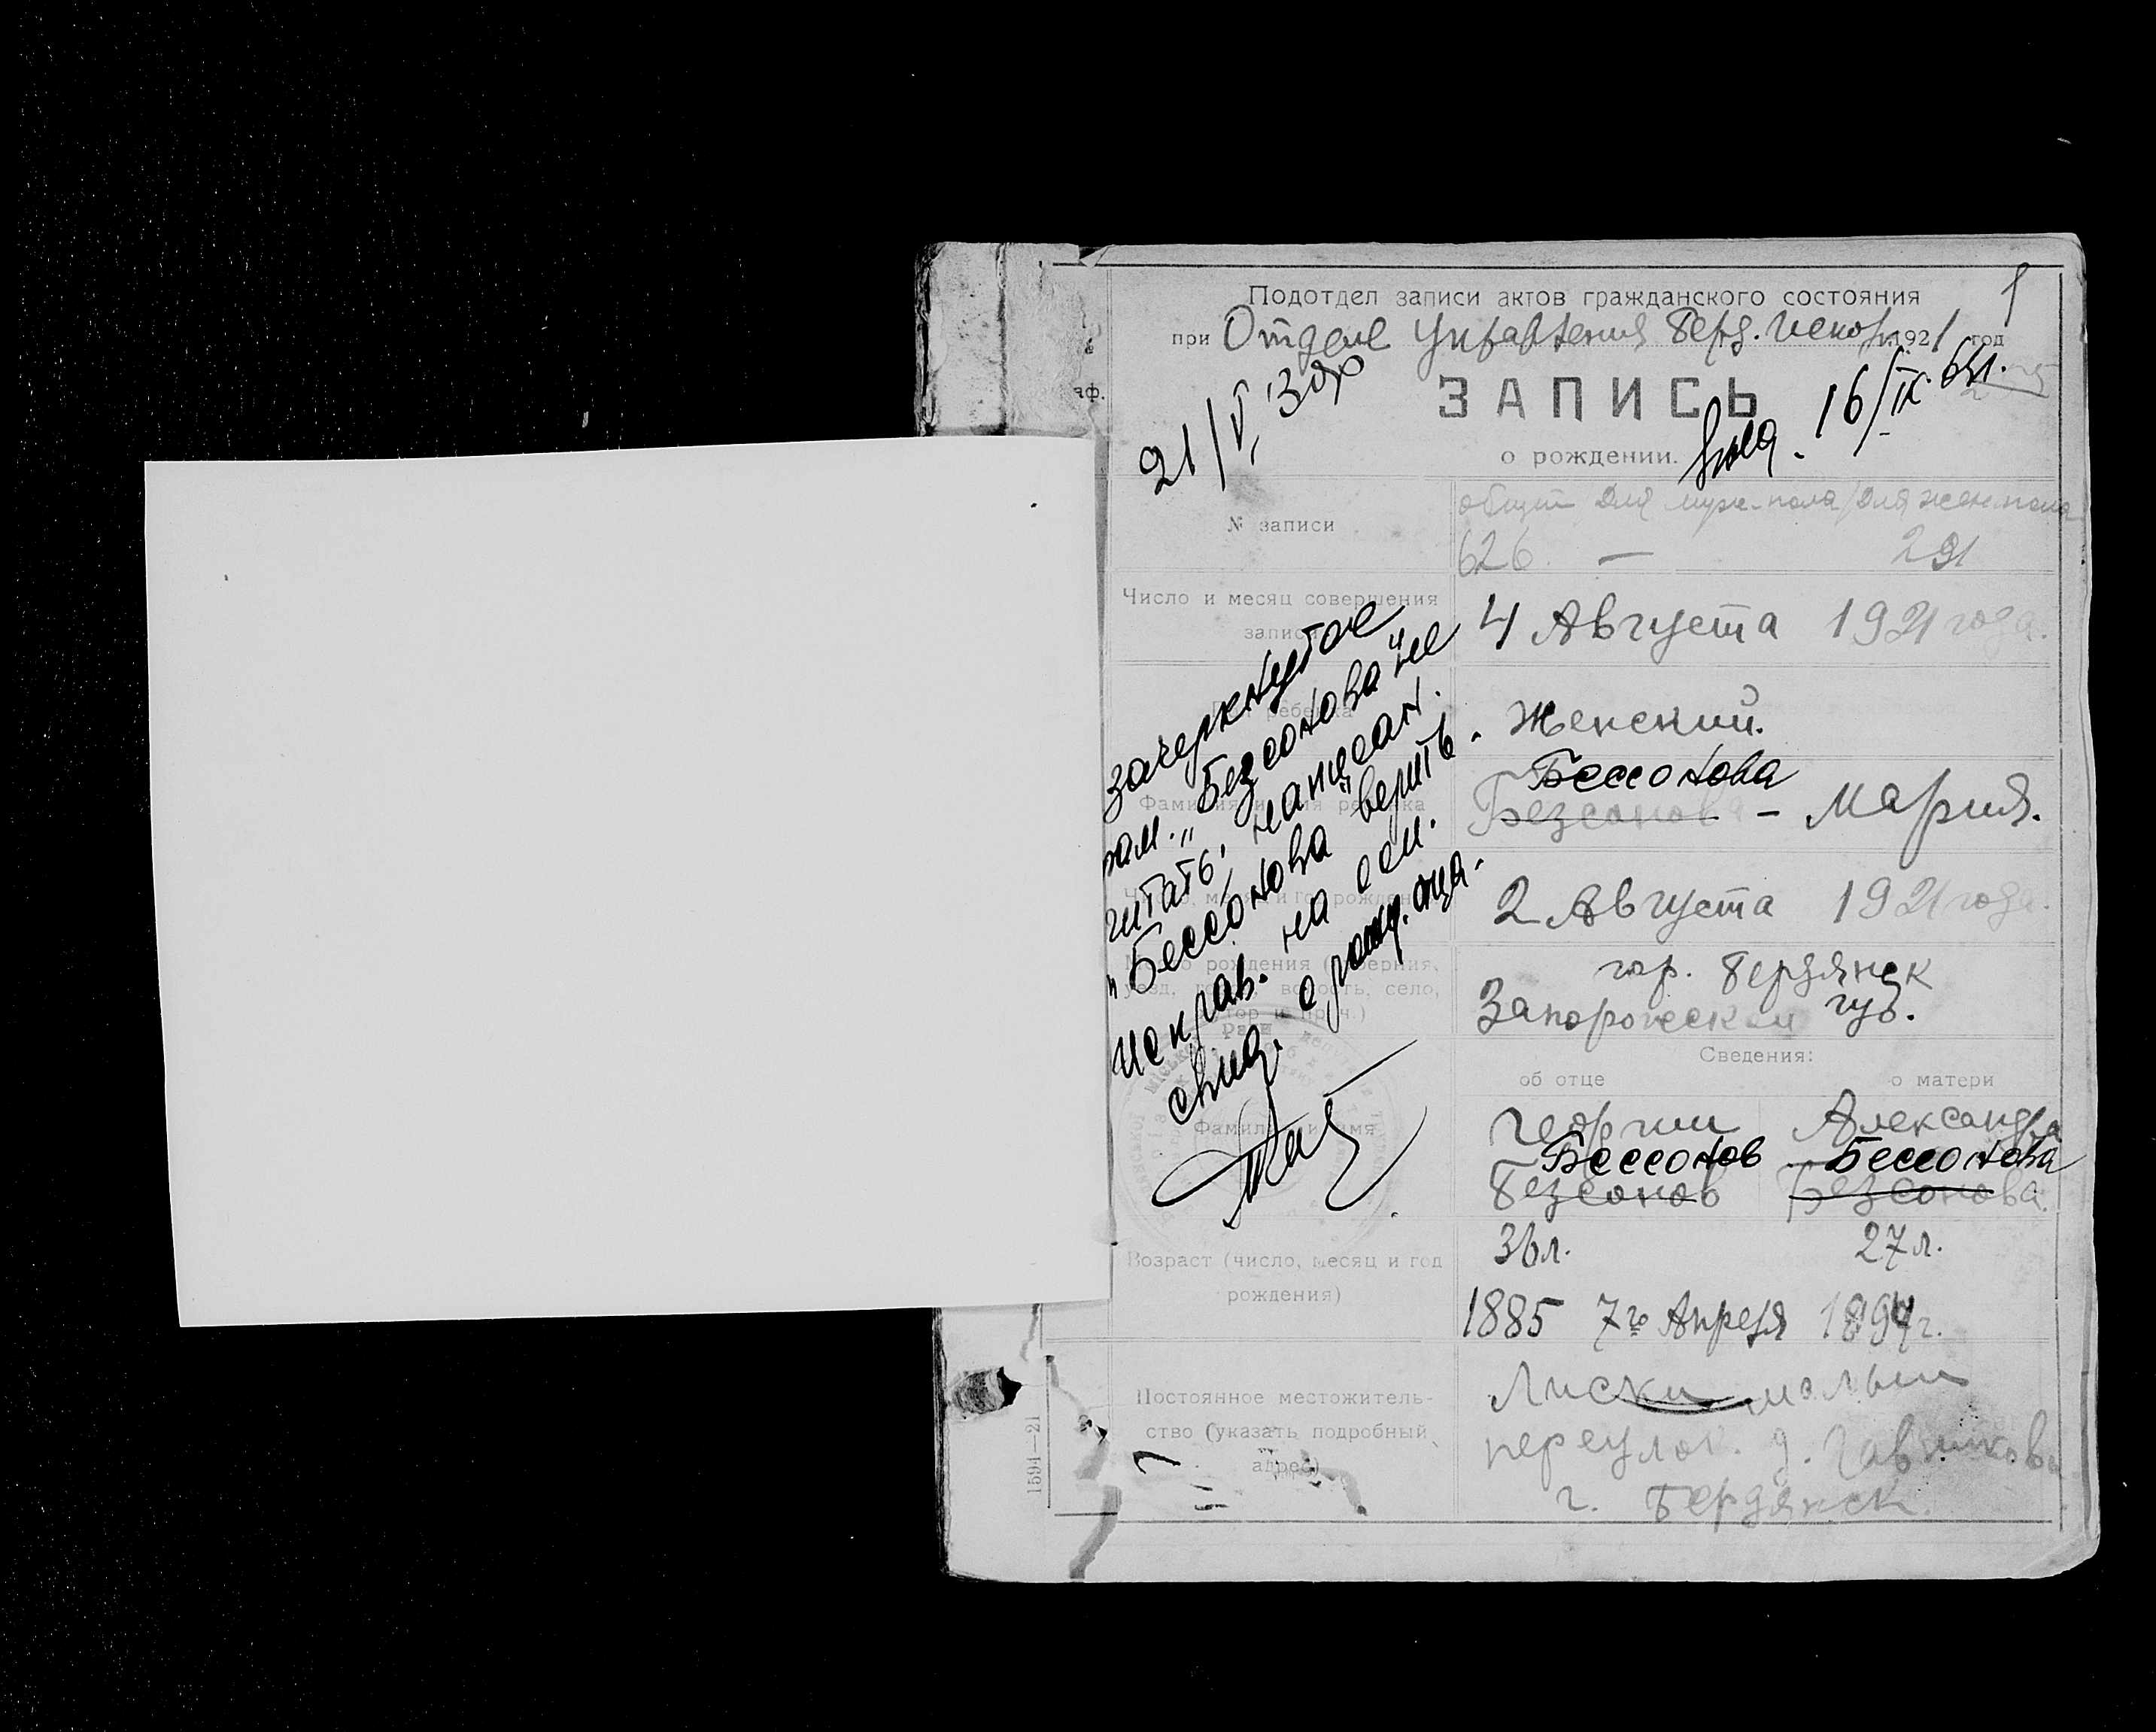 1
Подотдел записи актов гражданского состояния
при Отделе Управления Берд. Исполк. 1921 год
21/V
ЗАПИСЬ
16/IX
о рождении.
№ записи
общий для муж. пола / для жен. пола
626. — 291
Число и месяц совершения
записи
4 Августа 1921 года.
Пол ребенка
Женский.
Фамилия и имя ребенка
Бессонова
Безсонова - Мария.
Число, месяц и год рождения
2 Августа 1921 года.
Место рождения (губерния,
уезд, город, волость, село,
хутор и проч.)
гор. Бердянск
Запорожской губ.
Сведения:
об отце
о матери
Фамилия и имя
Георгий Александра
Бессонов Бессонова
Безсонов Безсонова.
Возраст (число, месяц и год
рождения)
36 л. 27 л.
1885 7го Апреля 1894 г.
Постоянное местожитель-
ство (указать подробный
адрес)
Лиски малый
переулок. д.
г. Бердянск.
зачеркнутое
фам. „Безсонова" не
читать, написан.
„Бессонова" верить.
Исправ. на осн.
свид. о рожд. отца.
1594—21